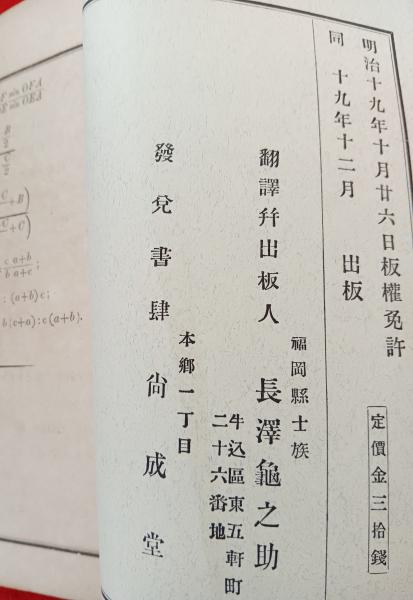 明治十九年十月廿六日板權免許
同　十九年十二月　出板
定價金三拾錢
福岡縣士族
翻譯并出板人　長澤龜之助
牛込區東五軒町
二十六番地
本鄕一丁目
發兌書肆尙成堂
sin OFA
sin OEA
B
2
C
2
C
+B)
C
+C)
c a+b
b a+c ;
: (a+b) c;
b (c+a) : c (a+b).